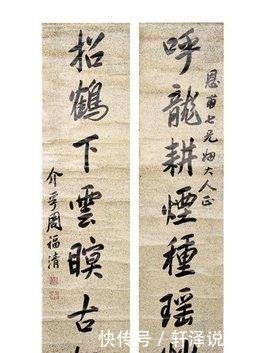 恩甫七兄姻大人正
呼龍耕煙種瑤
招鶴下雲瞑古
介孚周福清
快传号 / 轩泽说